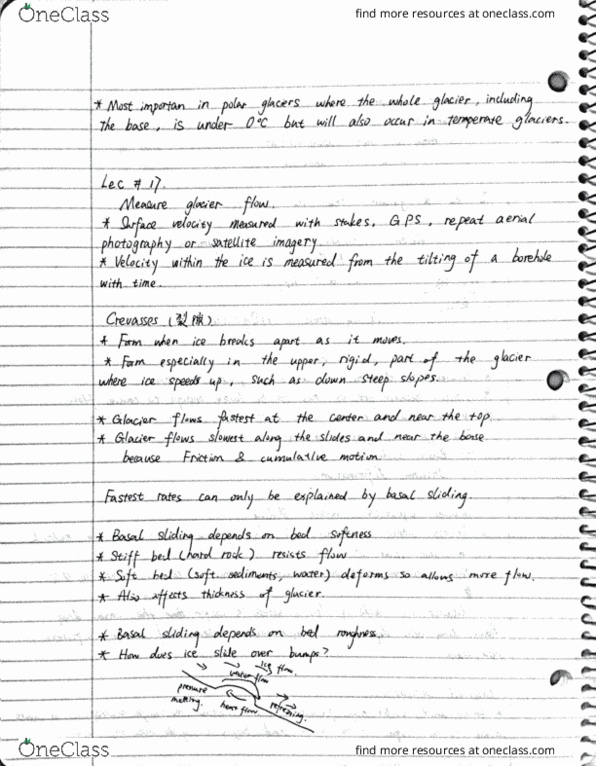 OneClass
find more resources at oneclass.com
* Most importan in polar glacers where the whole glacier, including
the base, is under 0°C but will also occur in temperate glaciers.
Lec # 17.
Measure glacier flow.
* Surface velocity measured with stakes, GPS, repeat aerial
photography or satellite imagery
* Velocity within the ice is measured from the tilting of a borehole
with time.
Crevasses (裂隙)
* Form when ice breaks apart as it moves.
* Form especially in the upper, rigid, part of the glacier
where ice speeds up, such as down steep slopes.
* Glacier flows fastest at the center and near the top
* Glacier flows slowest along the slides and near the base
because Friction & cumulative motion
Fastest rates can only be explained by basal sliding.
* Basal sliding depends on bed softness
* Stiff bed (hard rock) resists flow
* Soft bed (soft sediments, water) deforms so allows more flow.
* Also affects thickness of glacier.
* Basal sliding depends on bed roughness
* How does ice slide over bumps?
ice flow
water flow
pressure
melting.
heat flow
refreezing.
OneClass
find more resources at oneclass.com